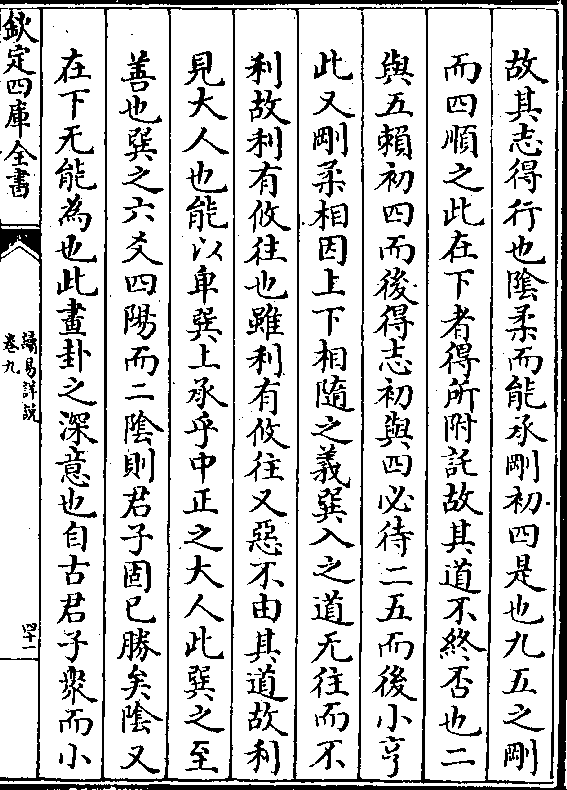 故其志得行也隂柔而能承剛初四是也九五之剛
而四順之此在下者得所附託故其道不終否也二
與五賴初四而後得志初與四必待二五而後小亨
此又剛柔相因上下相隨之義巽入之道无往而不
利故利有攸往也雖利有攸往又惡不由其道故利
見大人也能以卑巽上承乎中正之大人此巽之至
善也巽之六爻四陽而二隂則君子固已勝矣隂又
在下无能為也此畫卦之深意也自古君子衆而小
欽定四庫全書
讀易詳說
卷九
四十二